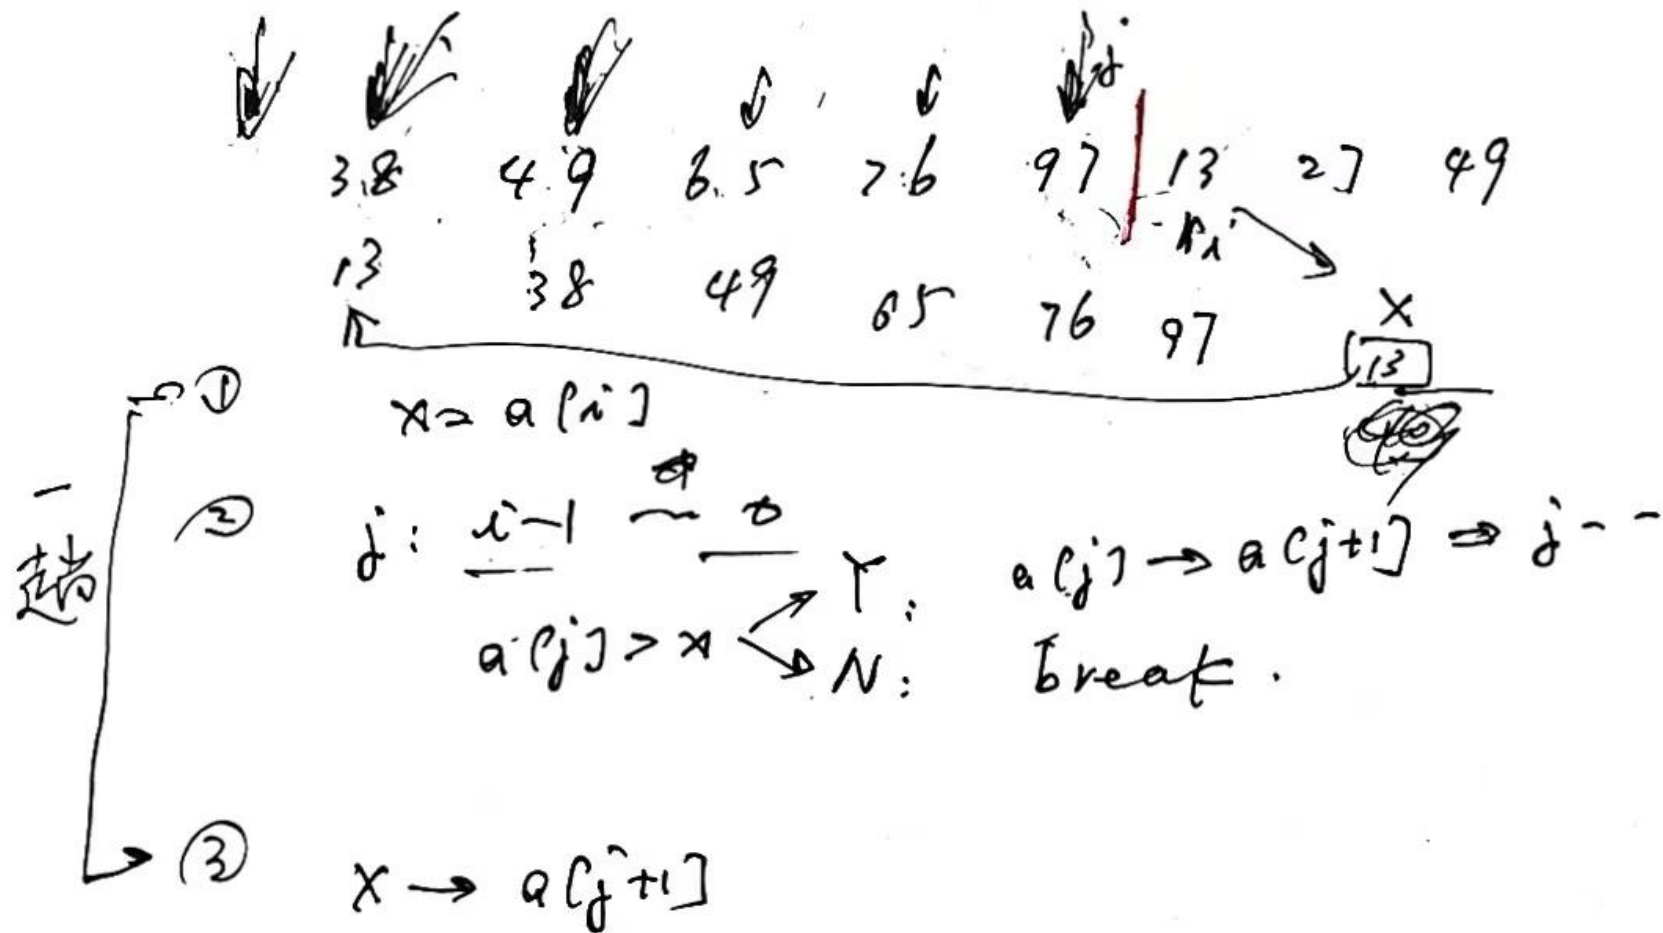 j
38 49 65 76 97 13 27 49
i
13 38 49 65 76 97
X
13
一趟
① x = a[i]
② j: i-1 ~ 0
a[j] > x
Y: a[j] → a[j+1] ⇒ j--
N: break.
③ X → a[j+1]